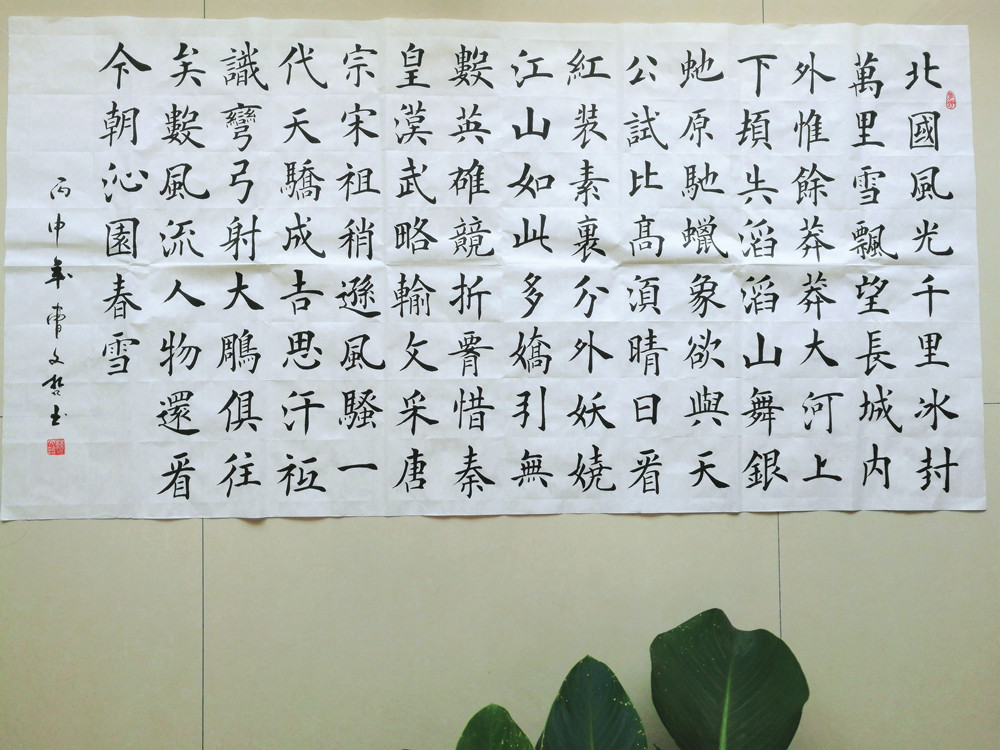 北國風光千里冰封
萬里雪飄望長城内
外惟餘莽莽大河上
下頓失滔滔山舞銀
虵原馳蠟象欲與天
公試比髙湏晴日看
紅裝素裹分外妖嬈
江山如此多嬌引無
數英雄競折腰惜秦
皇漢武略輸文采唐
宗宋祖稍遜風騷一
代天驕成吉思汗祗
識彎弓射大鵰俱往
矣數風流人物還看
今朝沁園春雪
丙申年曹文书